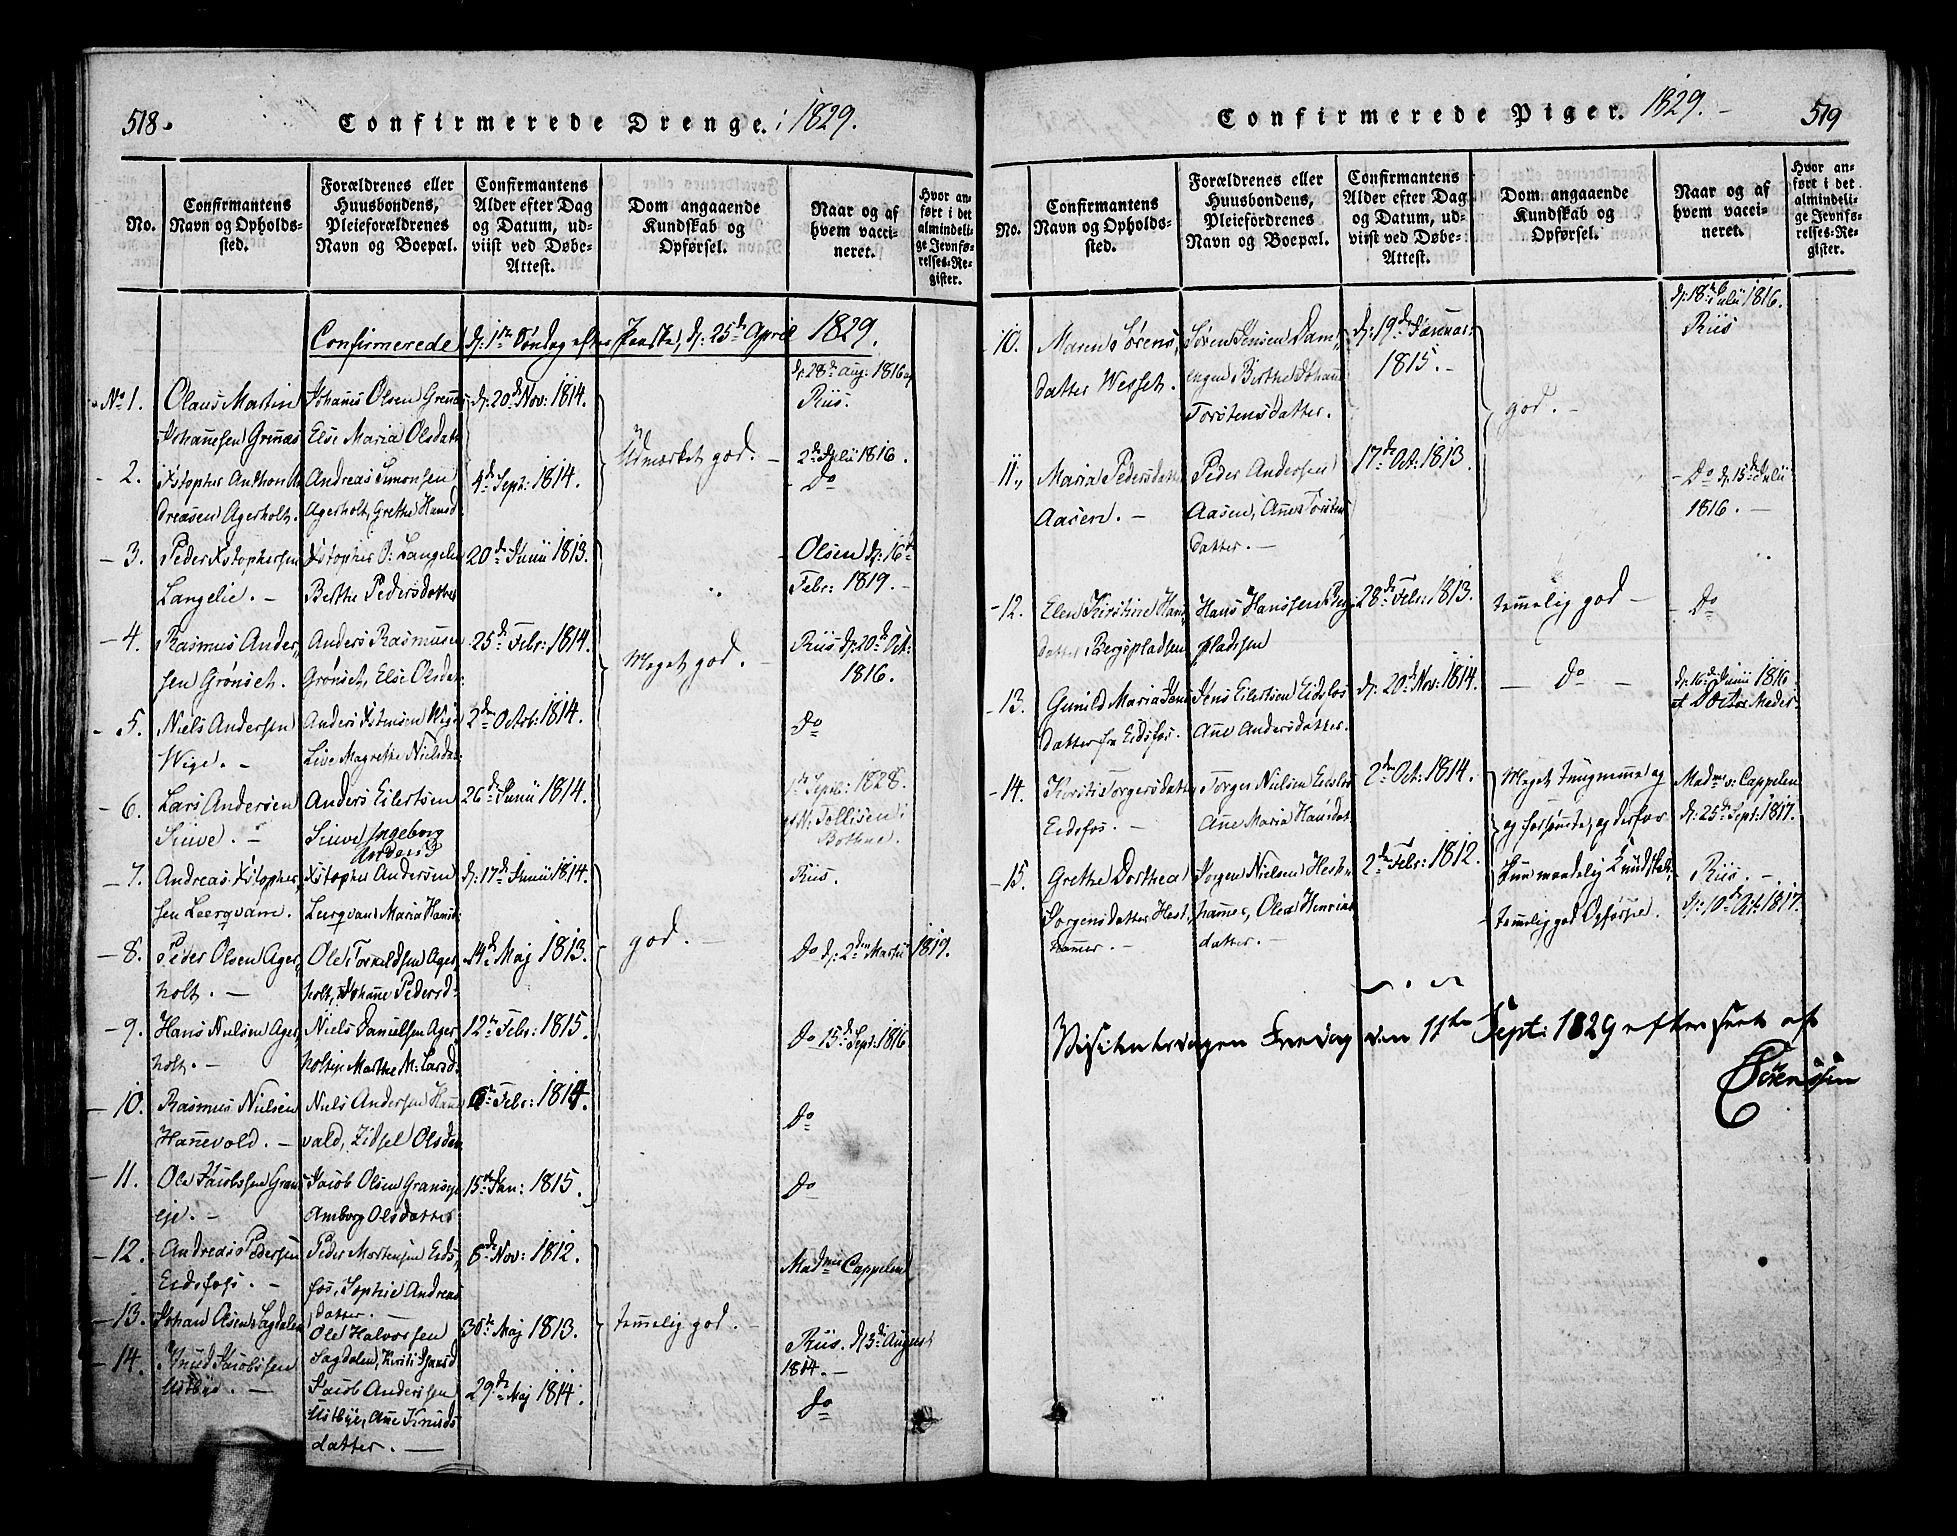 518.
Confirmerede Drenge. 1829.
No.
Confirmantens
Navn og Opholds-
sted.
Forældrenes eller
Huusbondens,
Pleieforældrenes
Navn og Boepæl.
Confirmantens
Alder efter Dag
og Datum, ud-
viist ved Døbe-
Attest.
Dom angaaende
Kundskab og
Opførsel.
Naar og af
hvem vacci-
neret.
Hvor an-
ført i det
almindeli-
ge Jevnfø-
relses-Re-
gister.
Confirmerede d: 1ste Søndag efter Paaske, d: 25de April 1829.
No 1.
Olaus Martin
Johannesen Grenæs
Johanes Olsen Grenæs
Else Maria Olsdatt
d: 20de Nov: 1814.
Udmærket god. -
d: 28de Aug: 1816 af
Riis.
- 2.
Xstopher Anthon An
dreasen Agerholt.
Andreas Simonsen
Agerholt, Grethe Hansd
4de Sept: 1814.
2den Julii 1816.
Do
- 3.
Peder Xstophersen
Langelie. -
Xstopher O: Langelie
Berthe Pedersdatter
20de Junii 1813.
Olsen d: 16de
Febr: 1819. -
- 4.
Rasmus Ander,
sen Grönset.
Anders Rasmusen
Grönset, Else Olsdat
25de Febr: 1814.
Meget god. -
Riis d: 20de Oct:
1816.
- 5.
Niels Andersen
Wige. -
Anders Wige
Live Magrethe Nielsdat
2den Octb: 1814.
Do
- 6.
Lars Andersen
Siuve. -
Anders Eilertsen
Siuve Ingeborg
Andersd
26de Junii 1814.
1ste Sept: 1828.
af N: Tollisen i
Bothne.
- 7.
Andreas Xstopher,
sen Leerqvam.
Xstopher Andersen
Leerqvam Maria Hansd
d: 17de Junii 1814.
Riis.
- 8.
Peder Olsen Ager,
holt. -
Ole Torkildsen Ager,
holt, Johanne Pedersd
14de Maj 1813.
god. -
Do d: 2den Martii 1817.
- 9.
Hans Nielsen Ager,
holt. -
Niels Danielsen Ager,
holt, Marthe M: Larsd.
12te Febr: 1815.
Do 15de Sept: 1816
- 10.
Rasmus Nielsen
Hanevold. -
Niels Andersen Hanne
vald, Zidsel Olsdat
6te Febr: 1814.
Do
- 11.
Ole Jacobsen Grans
eje. -
Jacob Olsen Granseje
Amborg Olsdatter
15de Jan: 1815.
Do
- 12.
Andreas Pedersen
Eidsfoss. -
Peder Mortensen Eids,
fos, Sophie Andreas
datter. -
6de Nov: 1812.
Madme Cappelen
- 13.
Johan Olsen Sagdalen
Ole Halvorsen
Sagdalen, Kirsti Jansd
30te Maj 1813.
temmelig god. -
Riis. d: 3de August
1814. -
- 14.
Knud Jacobsen
Ustbye. -
Jacob Andersen
Ustbye, Ane Knuds
datter. -
29de Maj 1814.
Do
519
Confirmerede Piger. 1829. -
No.
Confirmantens
Navn og Opholds-
sted.
Forældrenes eller
Huusbondens,
Pleiefordrenes
Navn og Boepæl.
Confirmantens
Alder efter Dag
og Datum, ud-
viist ved Døbe-
Attest.
Dom angaaende
Kundskab og
Opførsel.
Naar og af
hvem vacci-
neret.
Hvor an-
ført i det
almindeli-
ge Jevnfø-
relses-Re-
gister.
10.
Maren Sörens,
datter Wesset.
Sören Jensen Dam,
engen, Berthe Johane
Torstensdatter.
d: 19de Januar
1815. -
god. -
d: 18de Julii 1816.
Riis
11.
Maria Pedersdatter
Aasen. -
Peder Andersen
Aasen, Ane Torstens
datter. -
17de Oct: 1813.
- Do d: 15de Julii
1816. -
- 12.
Elen Kirstine Hans
datter Bergspladsen
Hans Hansen Bergs
pladsen
28de Febr: 1813.
temmelig god -
- Do
- 13.
Gunild Maria Jens
datter fra Eidsfos.
Jens Eilertsen Eidsfos
Ane Andersdatter.
d: 20de Nov: 1814.
- Do -
d: 16de Junii 1816
af Doctor Meder.
- 14.
Kirsti Torgersdatter
Eidsfos. -
Torger Nielsen Eidsfos
Ane Maria Hansdat
2den Oct: 1814.
Meget tungnemme og
og forsömte, og derfor
Madme v: Cappelen
d: 25de Sept: 1817.
- 15.
Grethe Dorthea
Jorgensdatter Hest,
hamer. -
Jorgen Nielsen Hest,
hamer, Olea Henrics
datter. -
2den Febr: 1812.
kun maadelig Kundskab.
temmelig god Opförsel.
Riis. -
d: 10de Oct: 1817.
Visitatsdagen Fredag den 11te Sept: 1829 efterseet af
Sörenssen